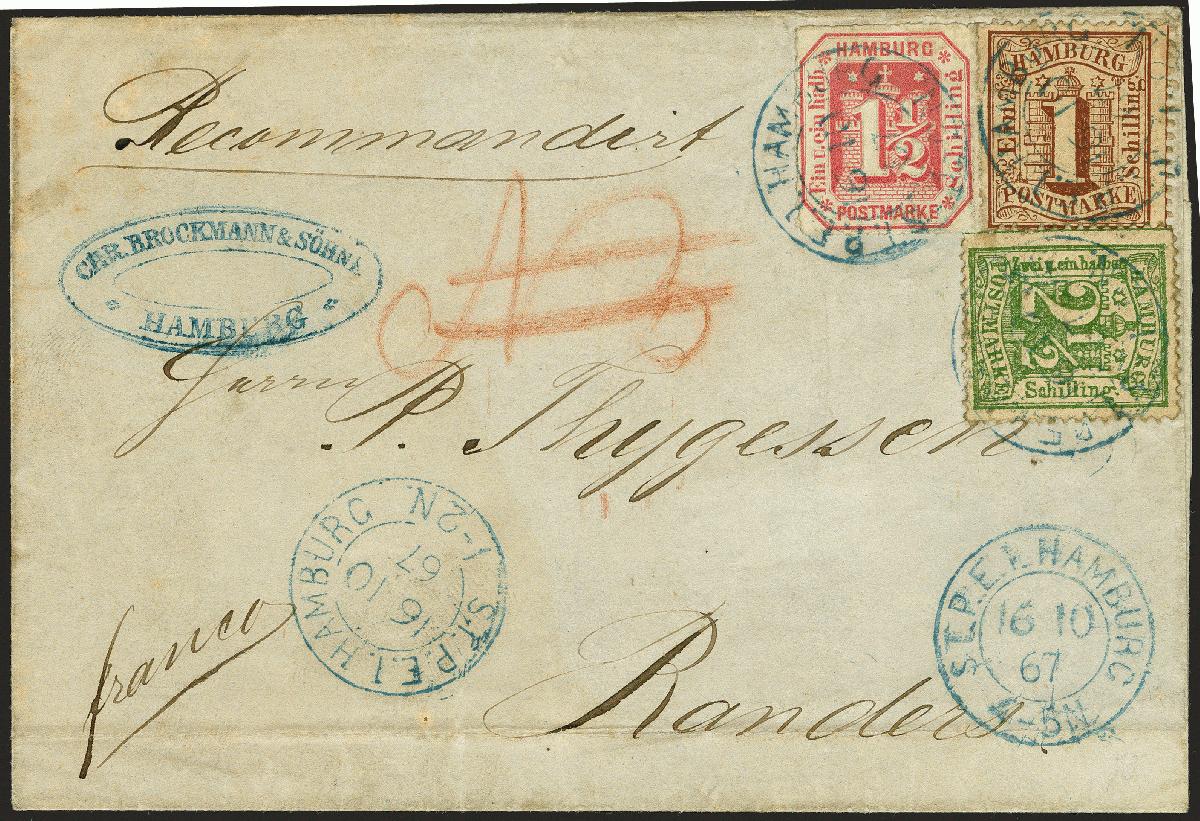 Recommandirt
HAMBURG
Ein u. ein halb
1 1/2
Schilling
POSTMARKE
HAMBURG
Ein
1
Schilling
POSTMARKE
HAMBURG
Zwei u. ein halber
2 1/2
Schilling
POSTMARKE
CHR. BROCKMANN & SÖHNE
HAMBURG
Herrn P. Thygessen
franco
Randers
S.T.P.E.I. HAMBURG
16 10
67
1-2N
ST.P.E.I. HAMBURG
16 10
67
4-5N